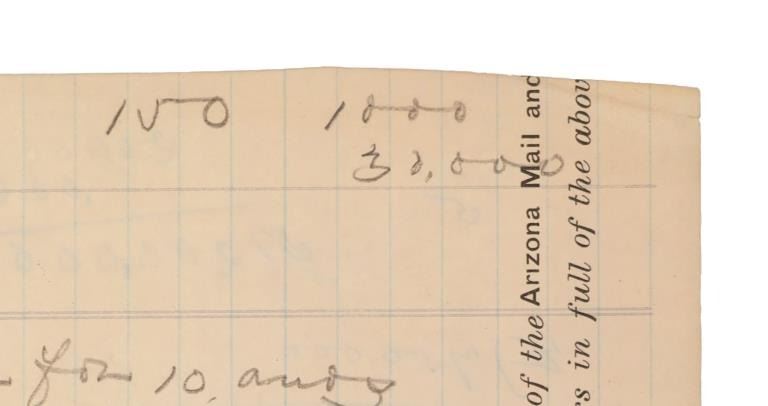 150 1000
30,000
for 10
of the Arizona Mail and
in full of the abov